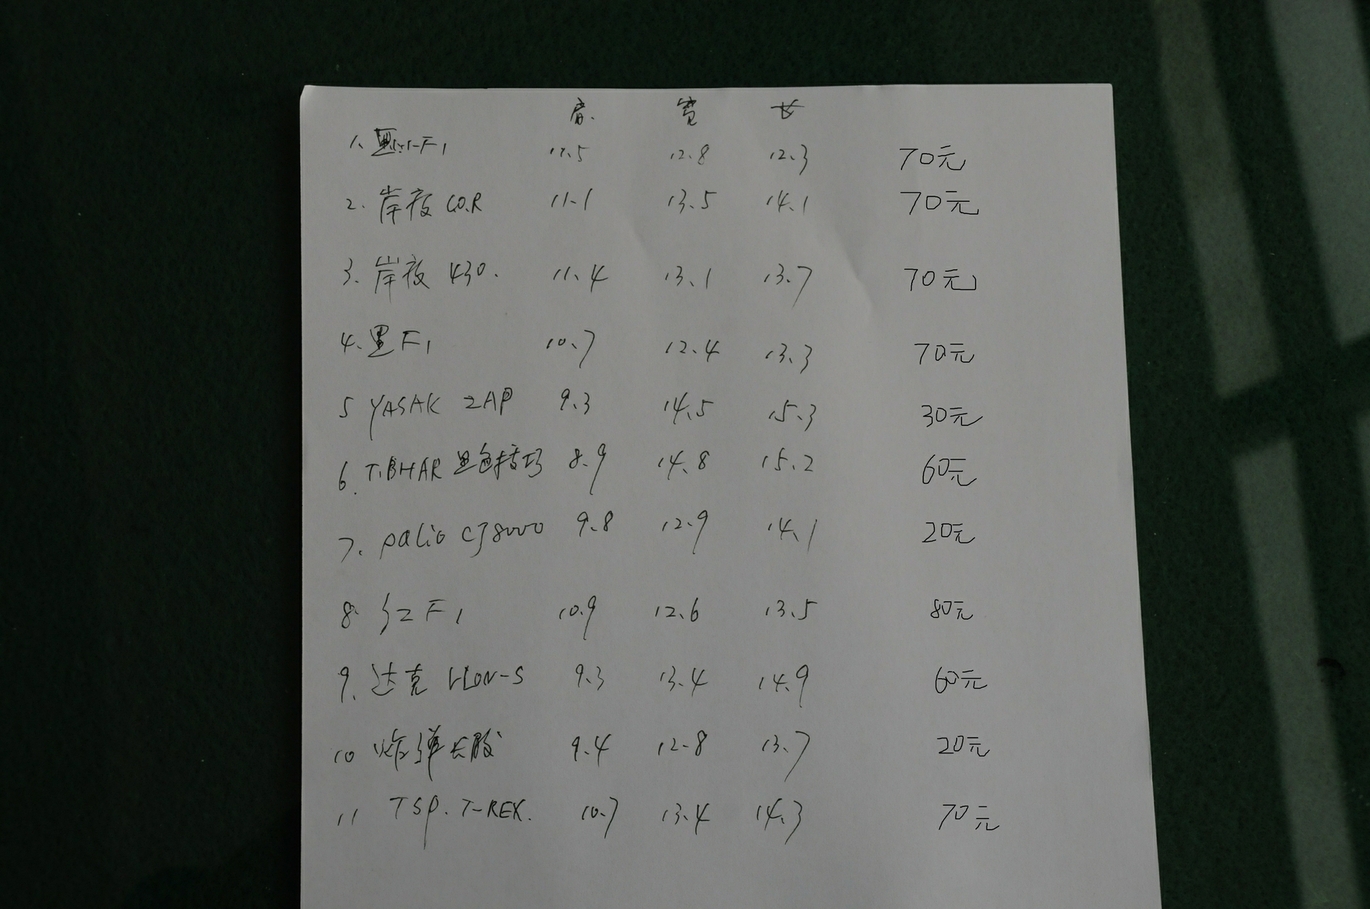 高. 宽 长
1、黑 F1 11.5 12.8 12.3 70元
2. 岸度 CO.R 11.1 13.5 14.1 70元
3. 岸度 430. 11.4 13.1 13.7 70元
4. 黑F1 10.7 12.4 13.3 70元
5 YASAK ZAP 9.3 14.5 15.3 30元
6. TIBHAR 黑色 8.9 14.8 15.2 60元
7. palio CJ8000 9.8 12.9 14.1 20元
8. 红F1 10.9 12.6 13.5 80元
9. 达克 9.3 13.4 14.9 60元
10 炸弹长胶 9.4 12.8 13.7 20元
11 TSP. T-REX. 10.7 13.4 14.3 70元